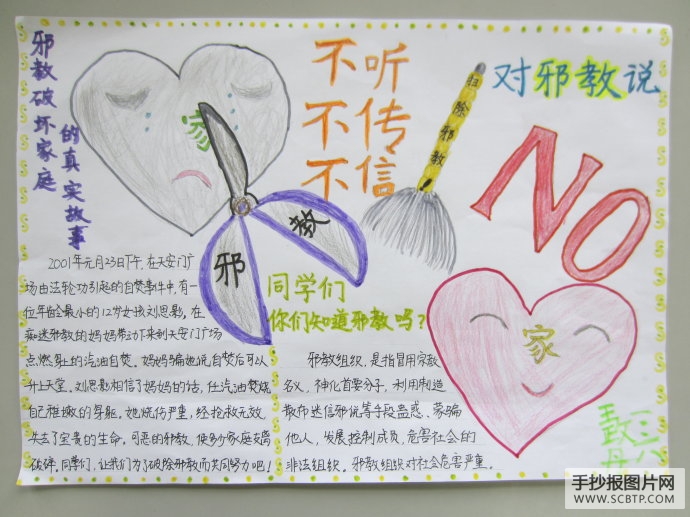 邪教破坏家庭
的真实故事
家
邪
教
不听
不传
不信
扫除邪教
对邪教说
NO
家
2001年元月23日下午,在天安门广
场由法轮功引起的自焚事件中,有一
位年龄最小的12岁女孩刘思影,在
痴迷邪教的妈妈带动下来到天安门广场
点燃身上的汽油自焚。妈妈骗她说自焚后可以
升上天堂。刘思影相信了妈妈的话,任汽油焚烧
自己稚嫩的身躯。她烧伤严重,经抢救无效,
失去了宝贵的生命。可恶的邪教,使多少家庭支离
破碎。同学们,让我们为了破除邪教而共同努力吧!
同学们
你们知道邪教吗?
邪教组织,是指冒用宗教
名义,神化首要分子,利用制造
散布迷信邪说等手段蛊惑、蒙骗
他人,发展控制成员,危害社会的
非法组织。邪教组织对社会危害严重。
三八
手抄报图片网
WWW.SCBTP.COM